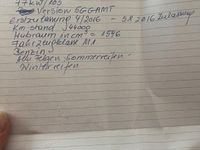 77KW/105
Version 5GGAMT
Erstzulassung 4/2016 - 5.8.2016 Zulassung
Km-stand 54400g
Hubraum in cm³ = 1596
Fahrzeugklasse M1
Benzin
Alu Felgen Sommerreifen -
Winterreifen